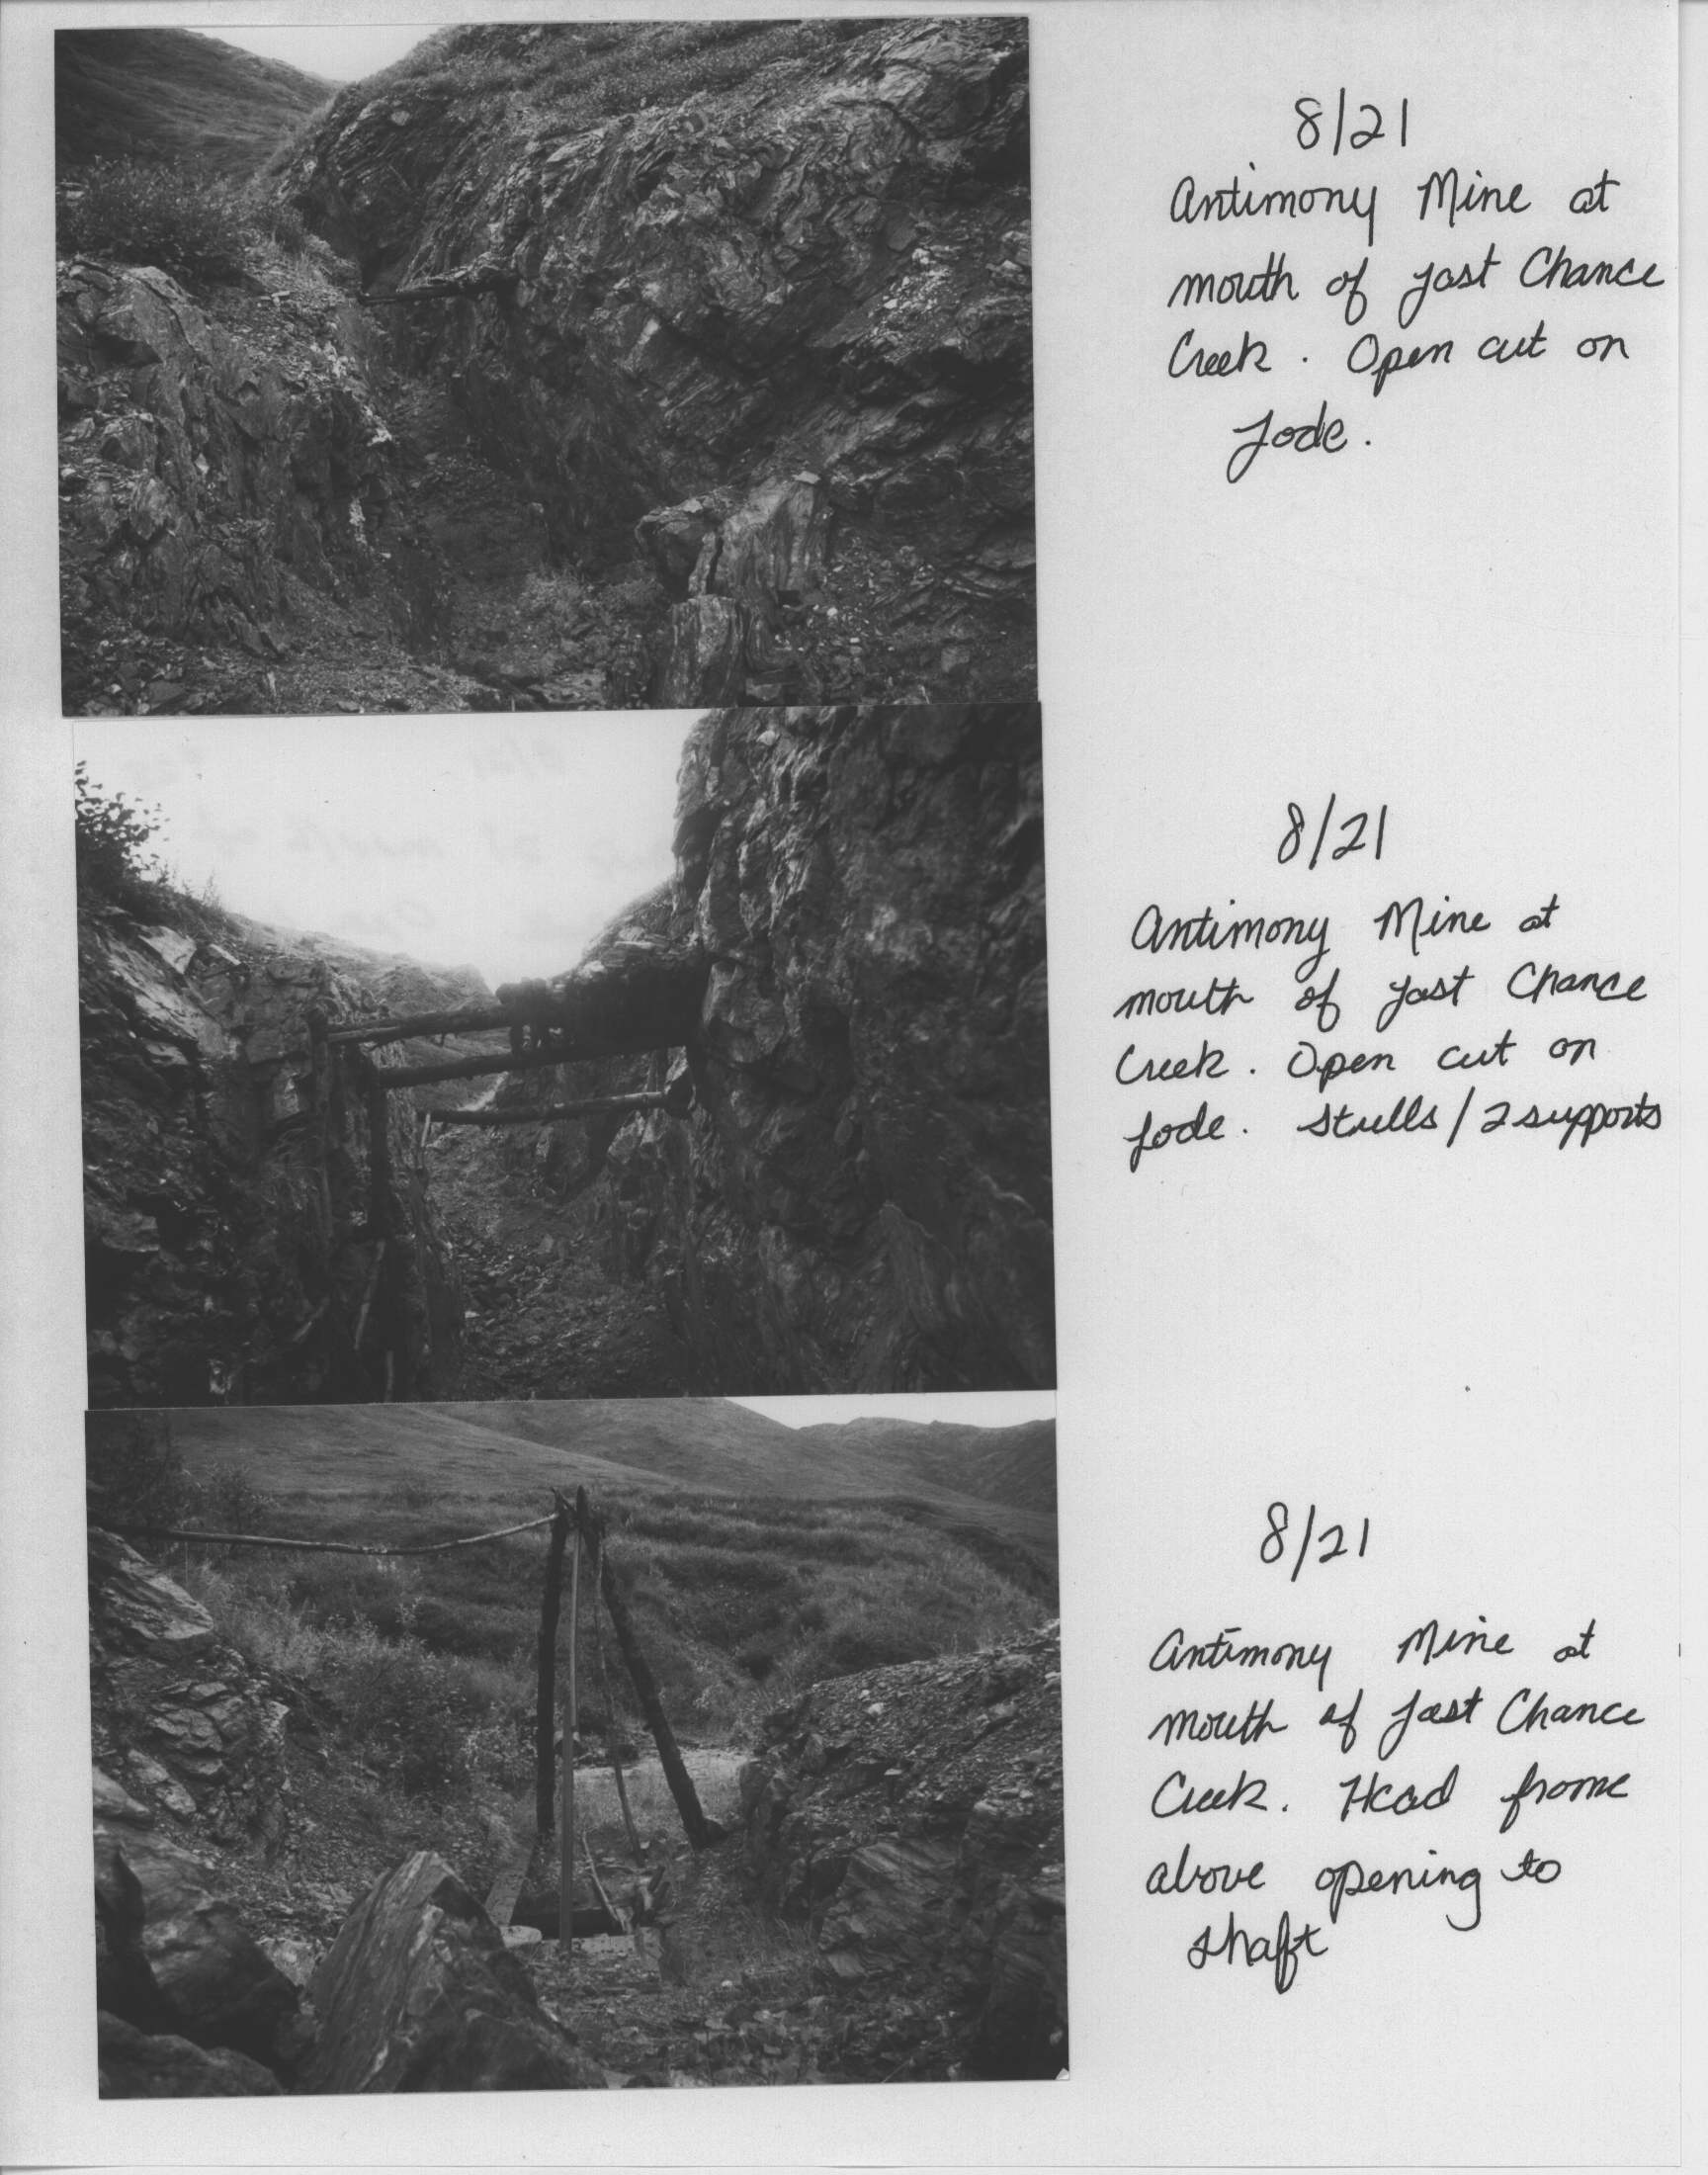 8/21
Antimony Mine at
mouth of Last Chance
Creek. Open cut on
Lode.
8/21
Antimony Mine at
mouth of Last Chance
Creek. Open cut on
Lode. Stulls/2 supports
8/21
Antimony Mine at
mouth of Last Chance
Creek. Head frame
above opening to
shaft